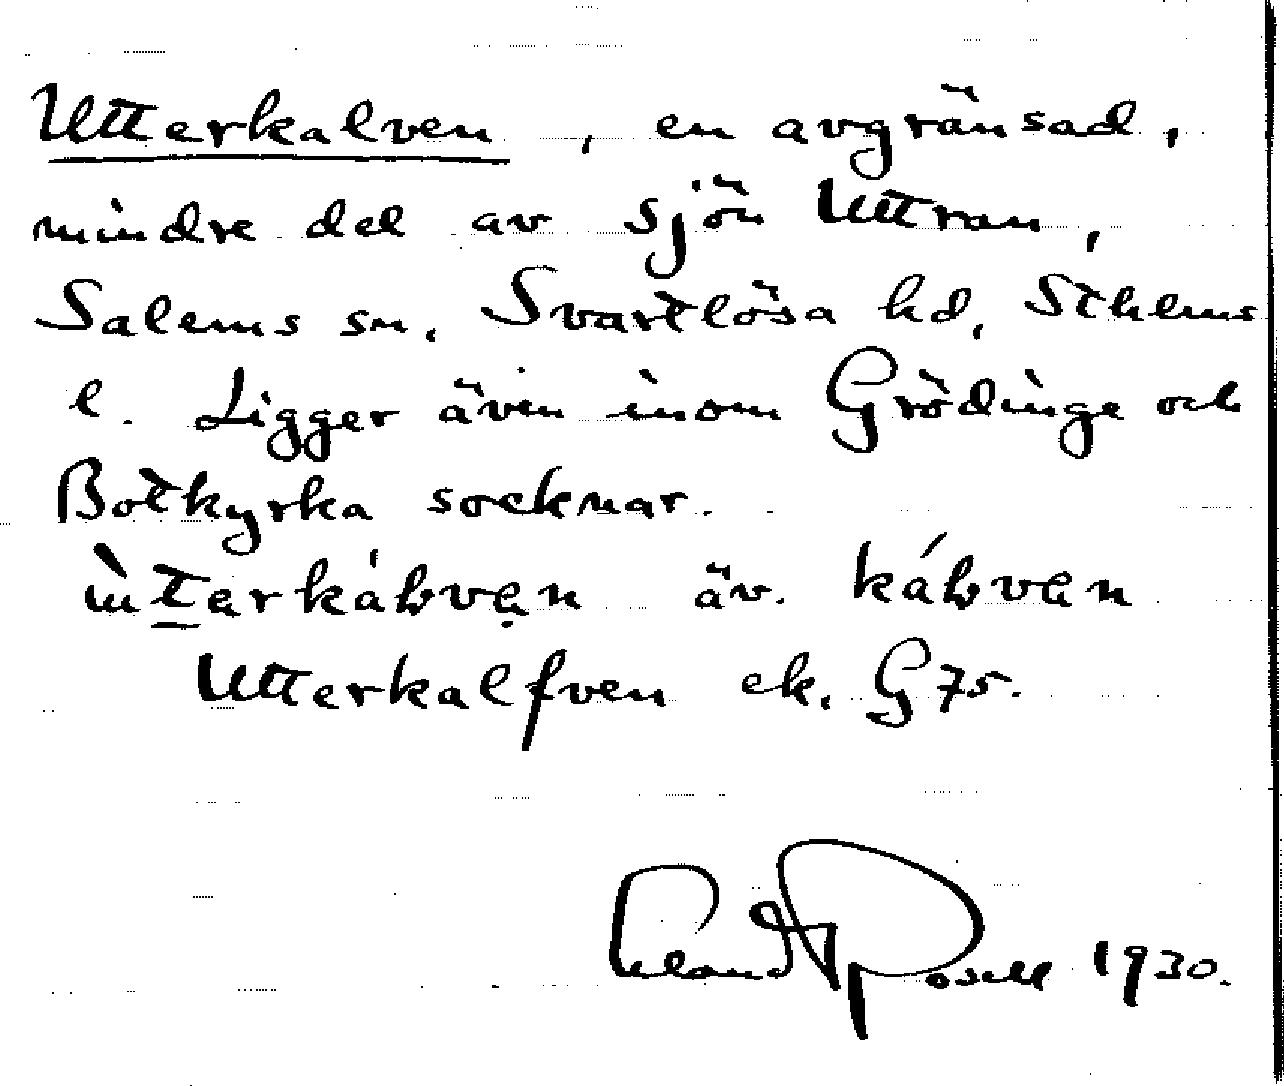 Utterkalven, en avgränsad,
mindre del av sjön Uttran,
Salems sn, Svartlösa hd, Sthlms
l. Ligger även inom Grödinge och
Botkyrka socknar.
äv.
Utterkalfven ek. G75.
Erland Rosell 1930.